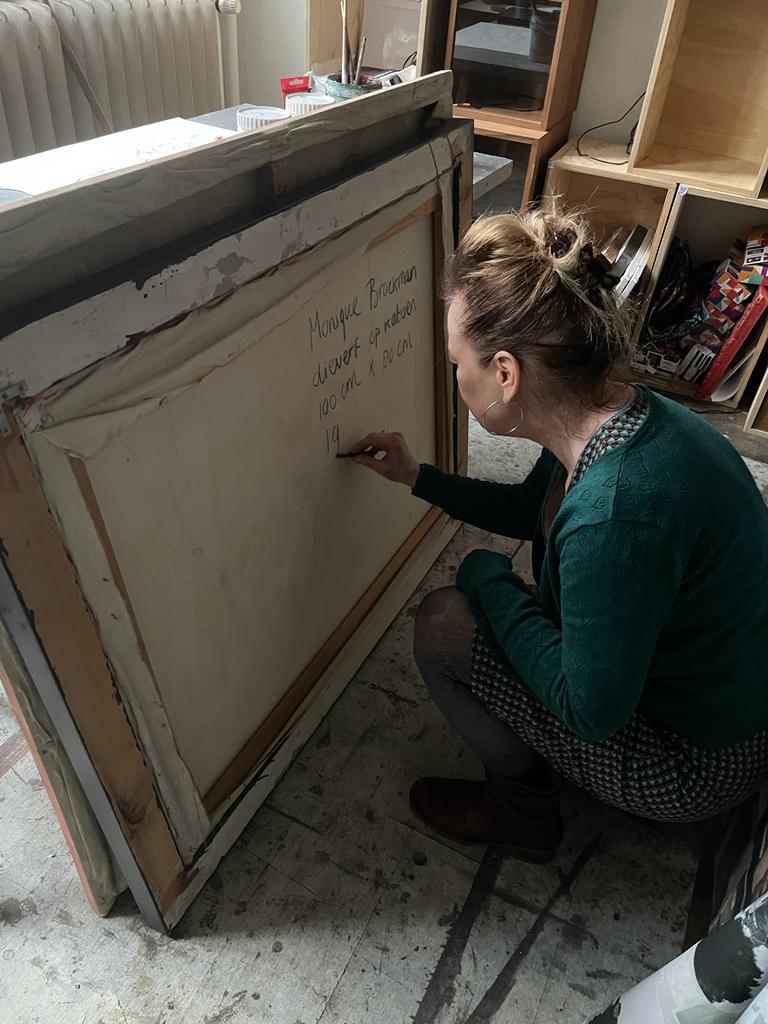 Monique Broekman
dievert op katoen
100 cm x 80 cm
19